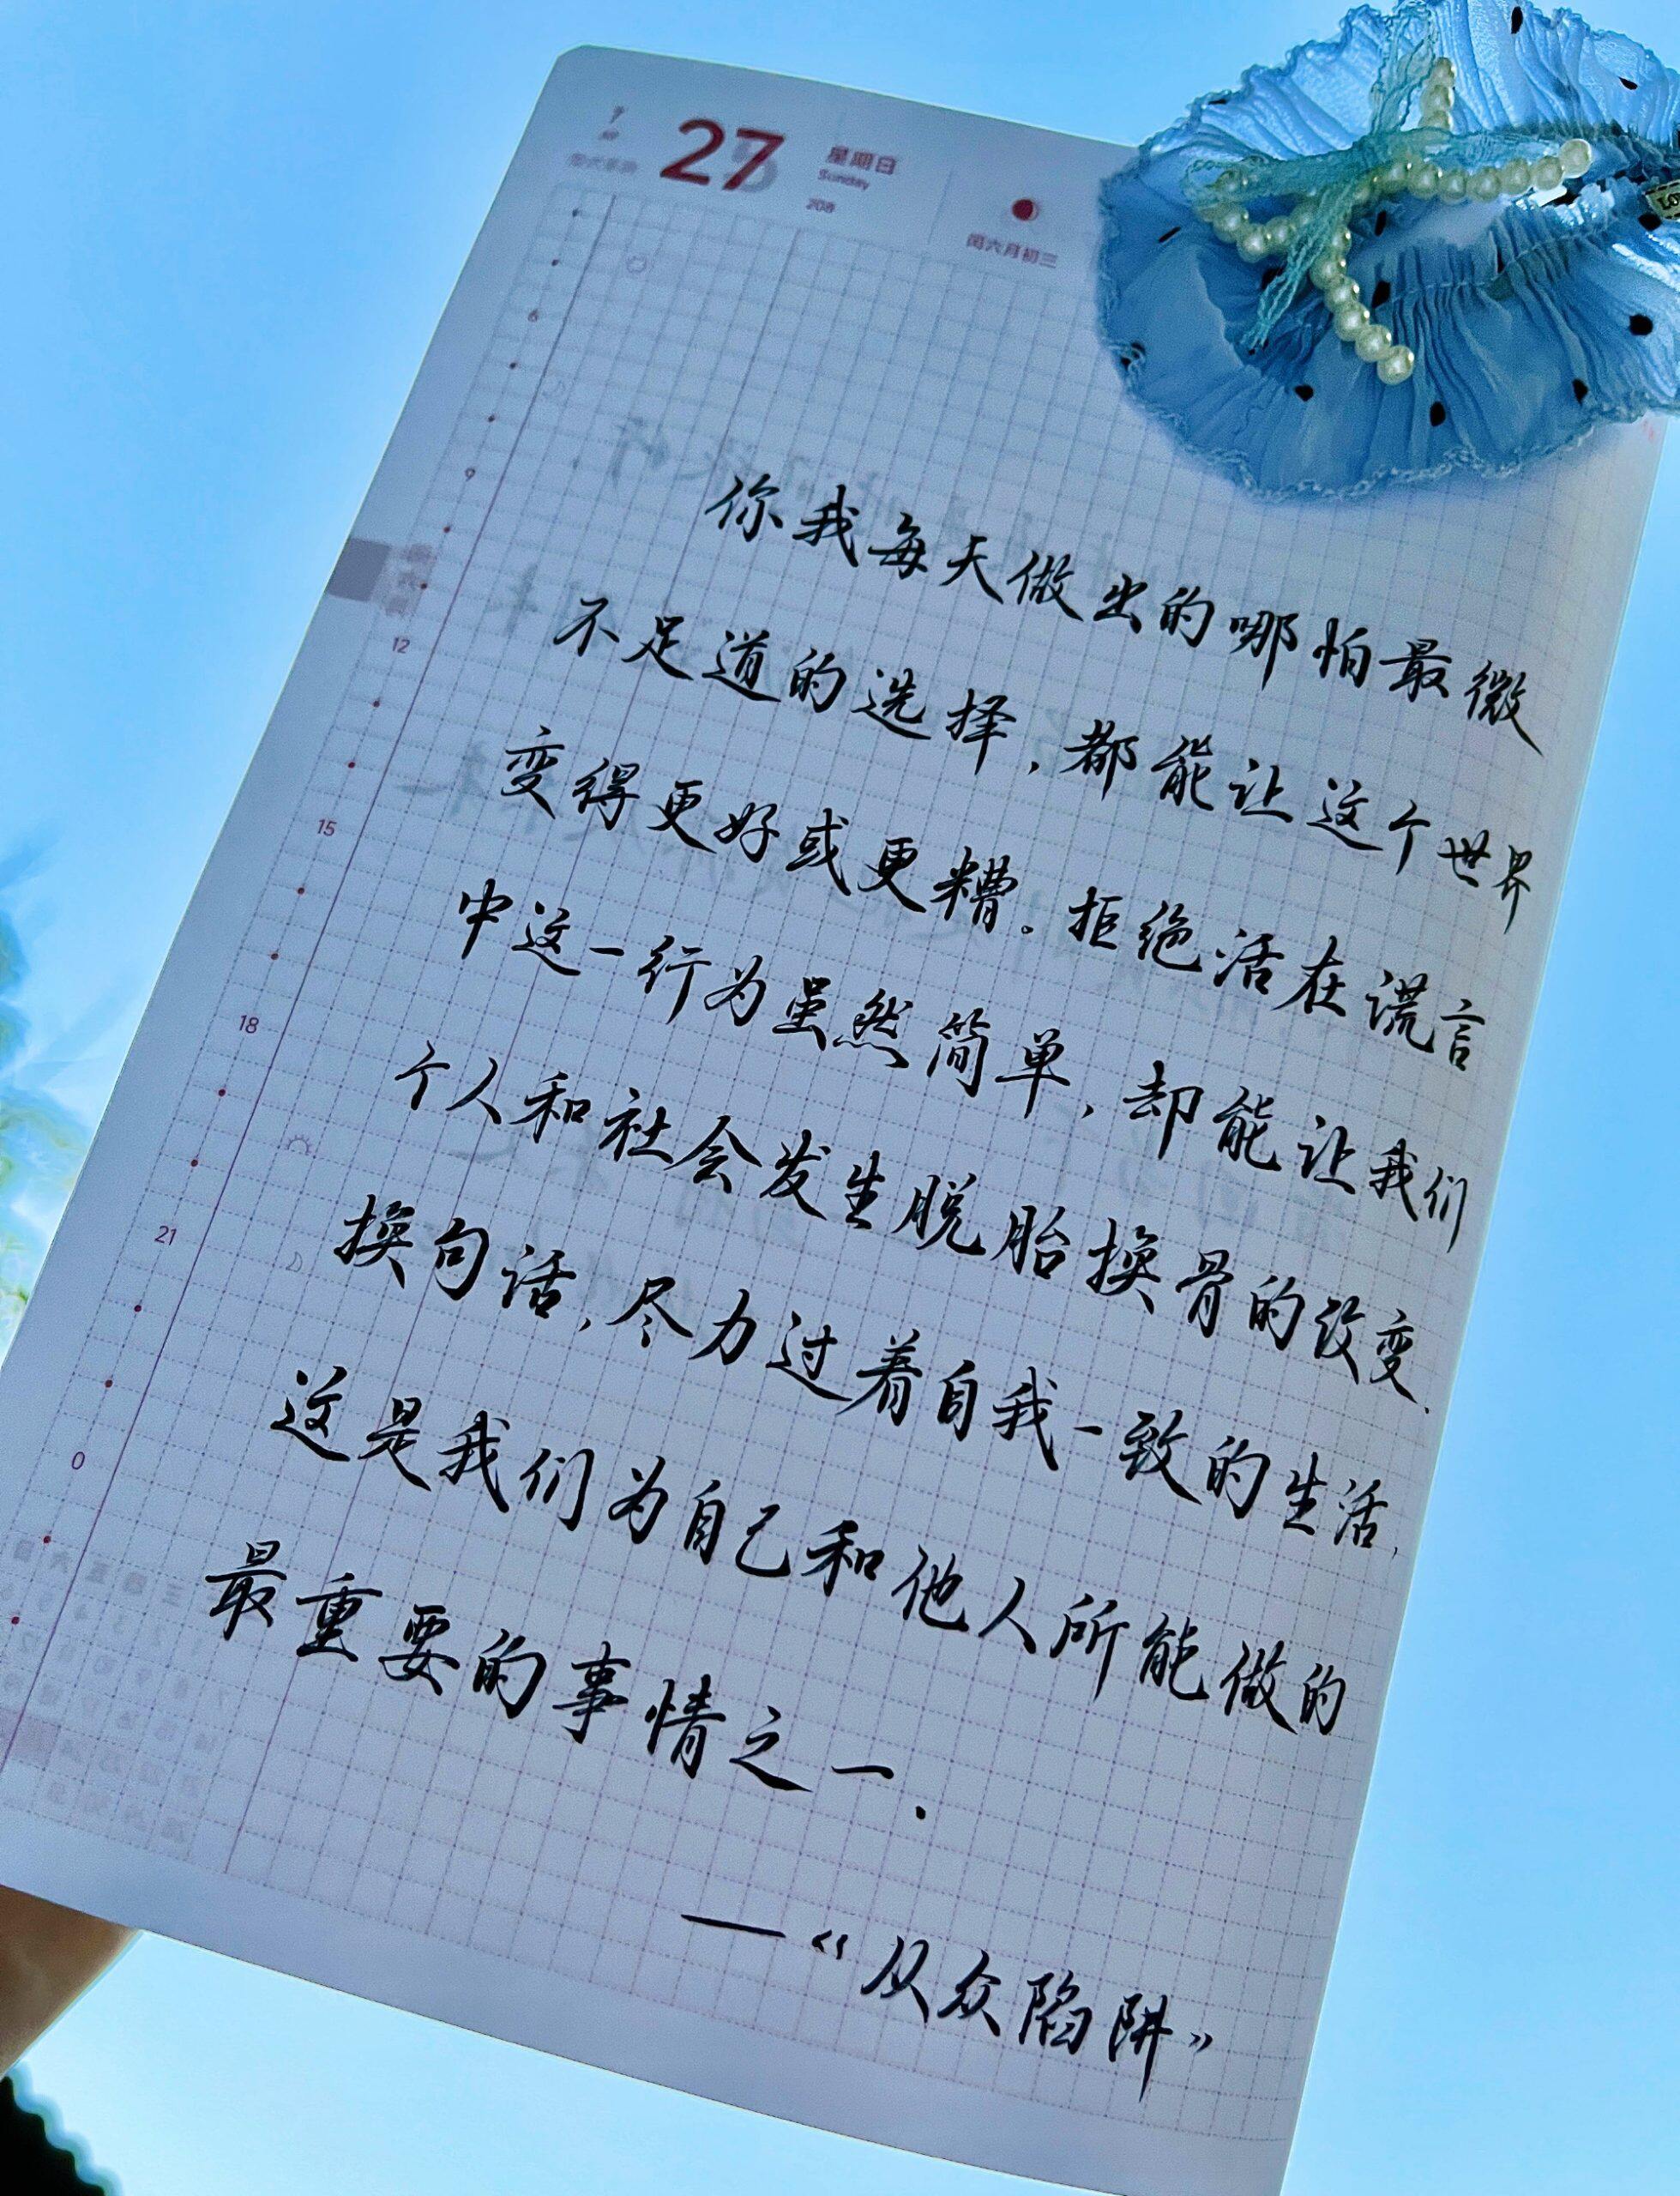 27
星期日
Sunday
208
闰六月初三
6
9
12
15
18
21
0
你我每天做出的哪怕最微
不足道的选择,都能让这个世界
变得更好或更糟。拒绝活在谎言
中这一行为虽然简单,却能让我们
个人和社会发生脱胎换骨的改变.
换句话,尽力过着自我一致的生活,
这是我们为自己和他人所能做的
最重要的事情之一.
—《从众陷阱》